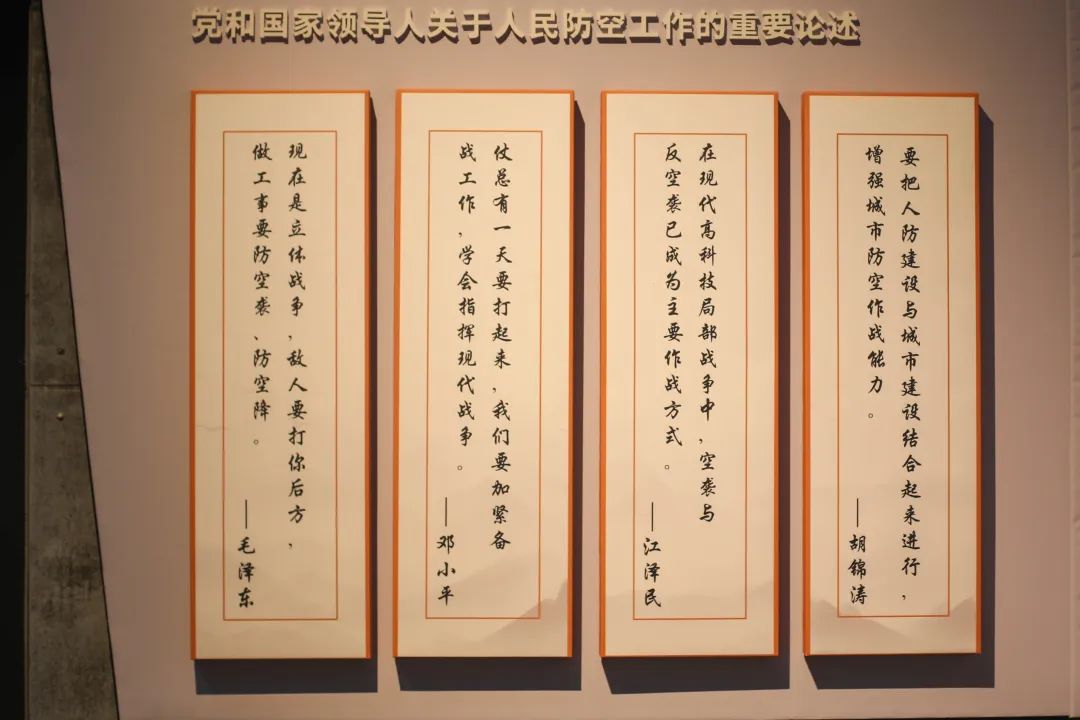 党和国家领导人关于人民防空工作的重要论述
现在是立体战争,敌人要打你后方,
做工事要防空袭、防空降。
——毛泽东
仗总有一天要打起来,我们要加紧备
战工作,学会指挥现代战争。
——邓小平
在现代高科技局部战争中,空袭与
反空袭已成为主要作战方式。
——江泽民
要把人防建设与城市建设结合起来进行,
增强城市防空作战能力。
——胡锦涛